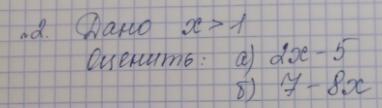 №2. Дано x > 1
Оценить: а) 2x - 5
б) 7 - 8x